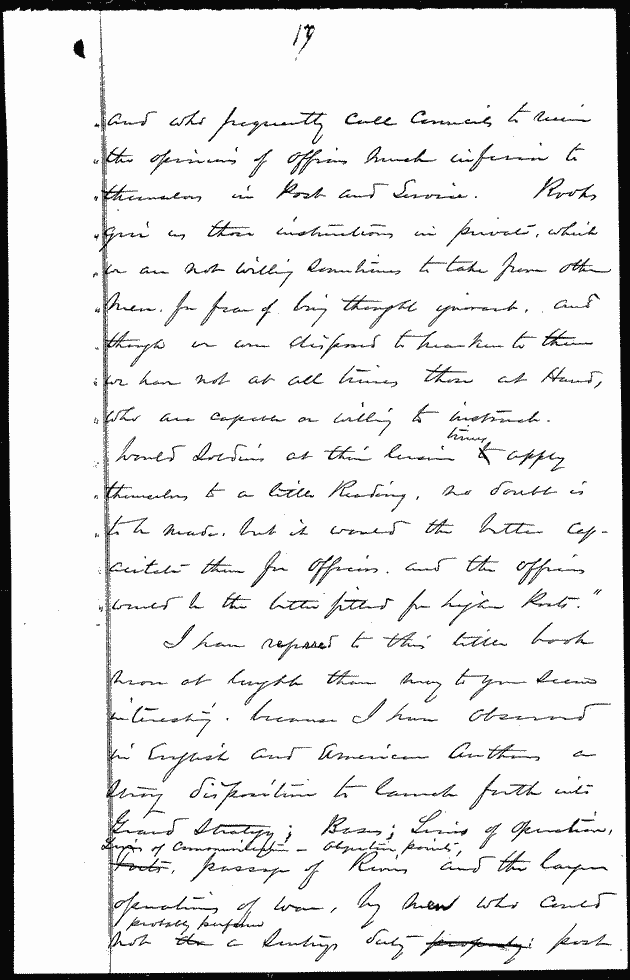 19
"and who frequently call Councils to receive
"the opinions of officers much inferior to
"themselves in Post and Service. Books
"give us those instructions in private, which
"we are not willing sometimes to take from other
"men, for fear of being thought ignorant, and
"though we are disposed to hearken to them
"we have not at all times those at Hand,
"who are capable or willing to instruct.
"Would Soldiers at their leisure times apply
"themselves to a little Reading, no doubt is
"to be made, but it would the better cap-
"acitate them for officers, and the officers
"would be the better fitted for higher Posts."
I have referred to this little book
more at length than may to you seem
interesting, because I have observed
in English and American Authors a
strong disposition to launch forth into
Grand Strategy; Bases; Lines of operation,
Lines of communication - objective points,
Forts, passage of Rivers and the larger
operations of war, by men who could
probably perform
not a Sentry's duty properly; post